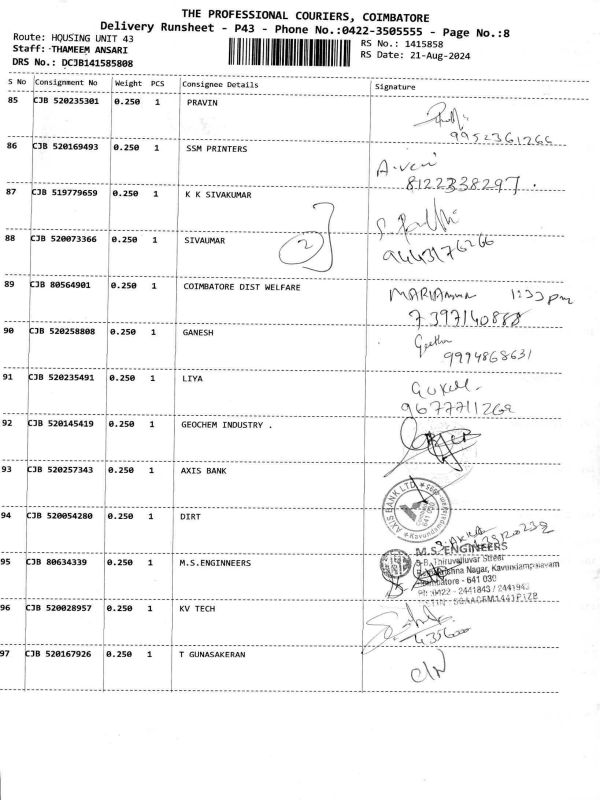 THE PROFESSIONAL COURIERS, COIMBATORE
Delivery Runsheet - P43 - Phone No.:0422-3505555 - Page No.:8
Route: HOUSING UNIT 43
RS No.: 1415858
Staff: THAMEEM ANSARI
RS Date: 21-Aug-2024
DRS No.: DCJB141585808
S No Consignment No Weight PCS Consignee Details Signature
85 CJB 520235301 0.250 1 PRAVIN
9952361266
86 CJB 520169493 0.250 1 SSM PRINTERS
A.veni
8122338297.
87 CJB 519779659 0.250 1 K K SIVAKUMAR
88 CJB 520073366 0.250 1 SIVAUMAR
2
9443176266
89 CJB 80564901 0.250 1 COIMBATORE DIST WELFARE
1:33 pm
7397140888
90 CJB 520258808 0.250 1 GANESH
Geetha
9994868631
91 CJB 520235491 0.250 1 LIYA
9677711269
92 CJB 520145419 0.250 1 GEOCHEM INDUSTRY .
93 CJB 520257343 0.250 1 AXIS BANK
AXIS BANK LTD.
641 030
94 CJB 520054280 0.250 1 DIRT
95 CJB 80634339 0.250 1 M.S.ENGINNEERS
M.S. ENGINEERS
Thiruvalluvar Street
Nagar, Kavundampalayam
Coimbatore - 641 030
PH: 0422 - 2441843 / 2441943
96 CJB 520028957 0.250 1 KV TECH
97 CJB 520167926 0.250 1 T GUNASAKERAN
C/N